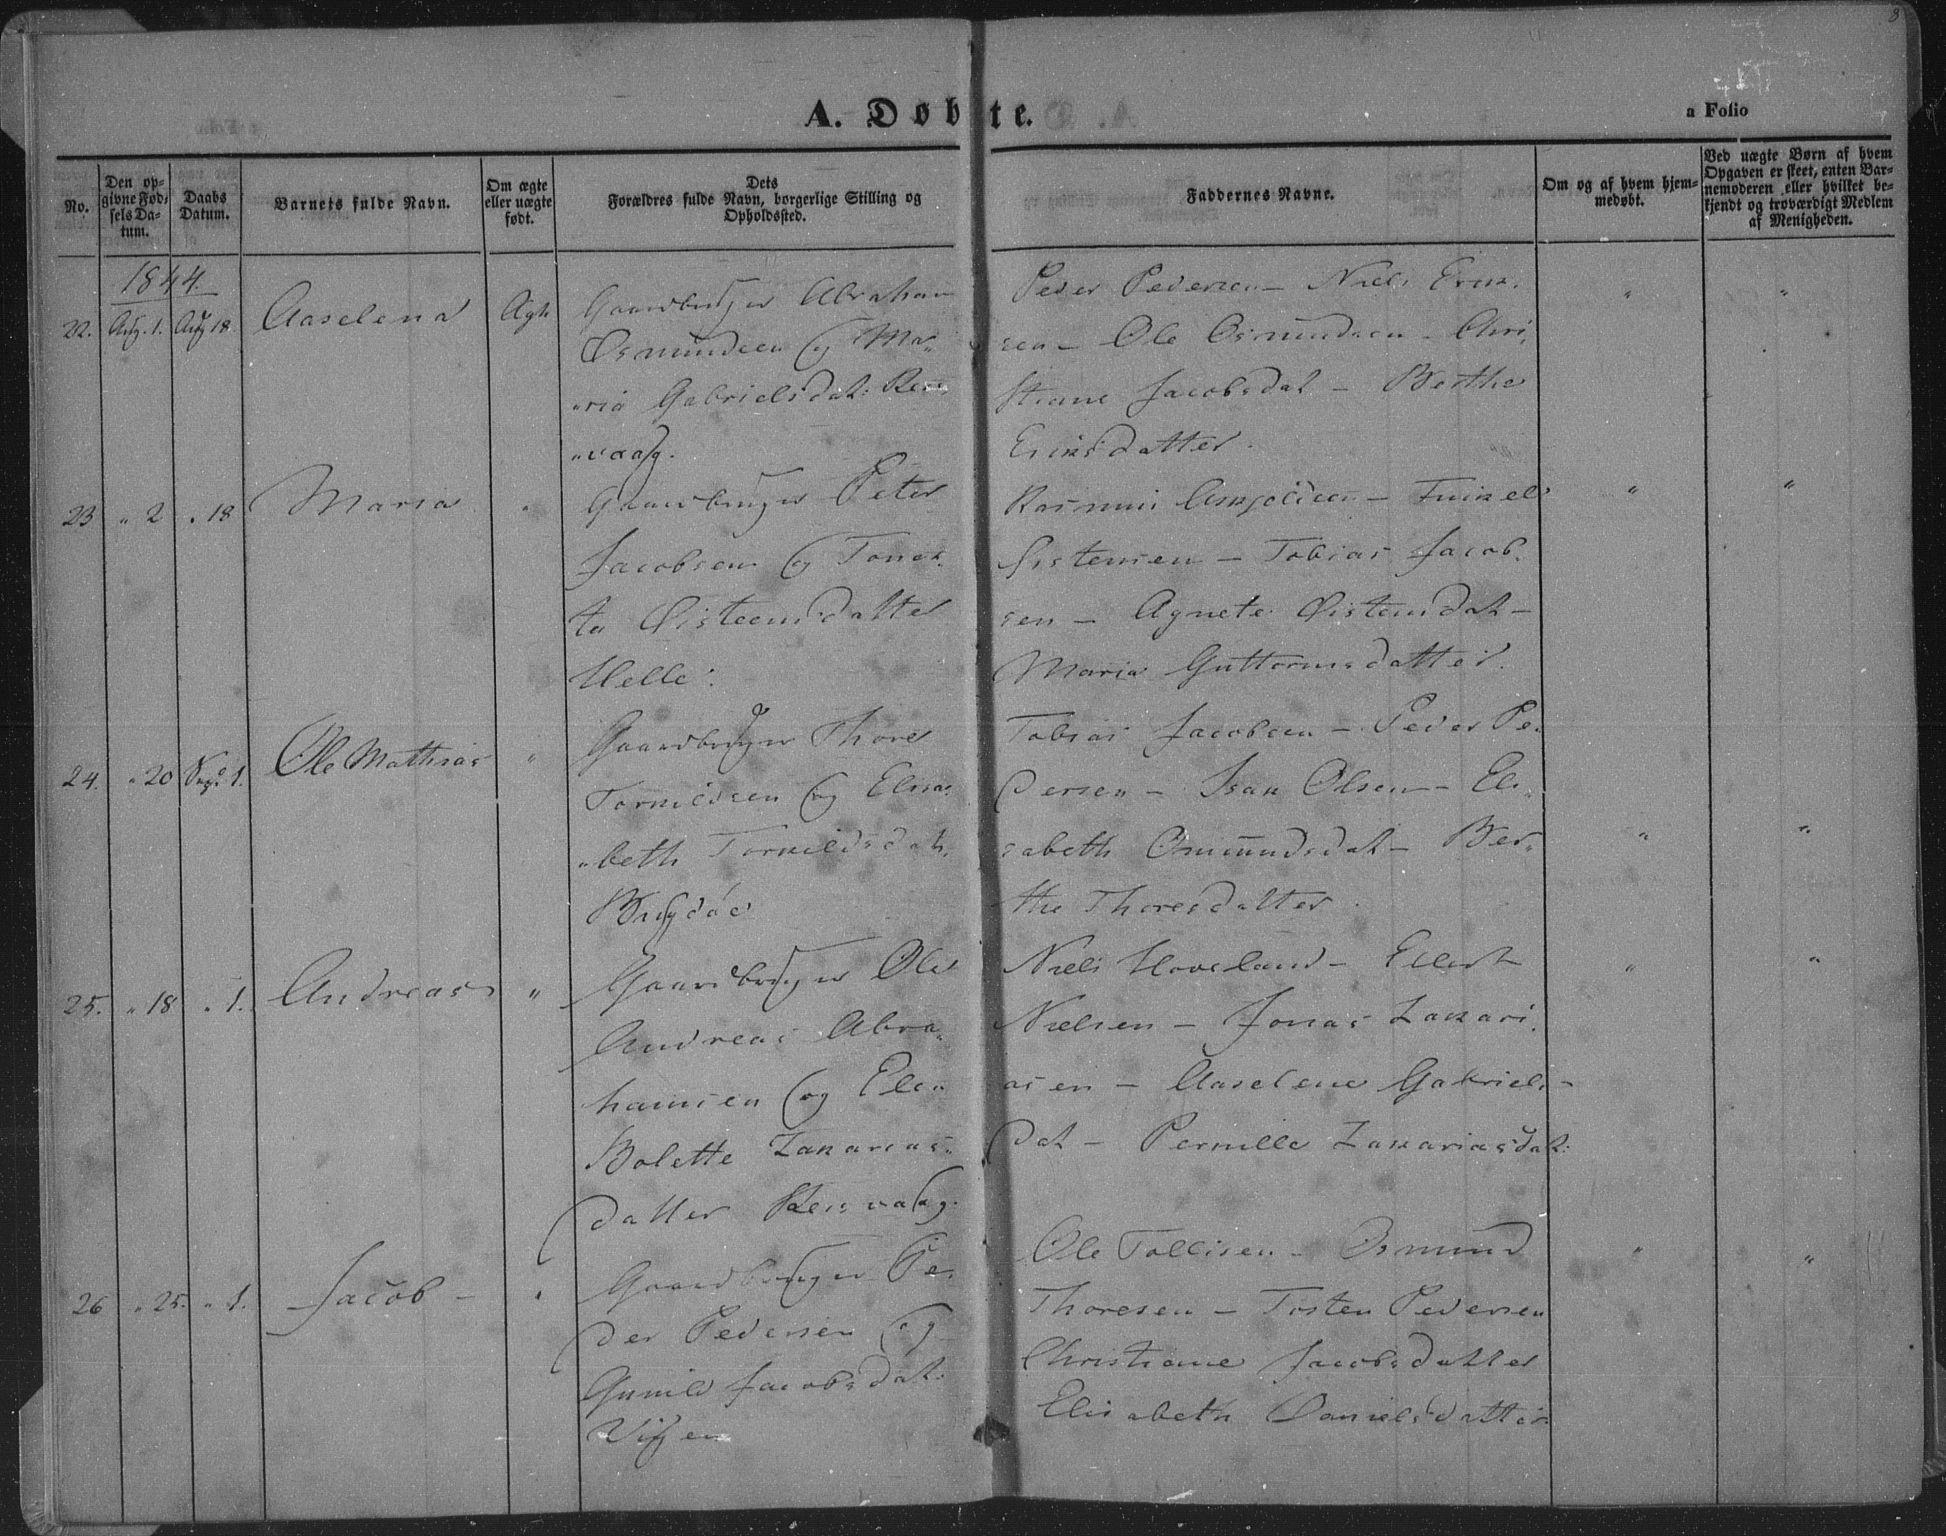 8
A. Døbte.
a Folio
No.
Den op-
givne Fød-
sels Da-
tum.
Daabs
Datum.
Barnets fulde Navn.
Om ægte
eller uægte
født.
Dets
Forældres fulde Navn, borgerlige Stilling og
Opholdssted.
Faddernes Navne.
Om og af hvem hjem-
medøbt.
Ved uægte Børn af hvem
Opgaven er skeet, enten Bar-
nemoderen eller hvilket be-
kjendt og troværdigt Medlem
af Menigheden.
1844.
22. Aug. 1. Aug 18. Aaselena Ægt
Gaardbruger Abraham
Osmundsen og Ma-
ria Gabrielsdat:
vaag.
Peder Pedersen - Niels Erik-
sen - Ole Osmundsen - Chri-
stiane Jacobsdat - Berthe
Eriksdatter.
" "
23 " 2 " 18 Maria "
Gaardbruger Peter
Jacobsen og Tone-
ta Øisteensdatter
Helle.
Rasmus - Tobias Jacob-
sen - Agnete Øistensdat -
Maria Guttormsdatter.
" "
24. " 20 Sept. 1. Ole Mathias "
Gaardbruger Thore
Torkildsen og Elisa-
beth Torkildsdat.
Bugdøe
Tobias Jacobsen - Peder Pe-
dersen - Isak Olsen - Eli-
sabeth Omundsdat - Ber-
the Thoresdatter.
" "
25. " 18 " 1. Andreas "
Gaardbruger Ole
Andreas Abra-
hamsen og Elen
Bolette Zakarias-
datter
Niels Hoveland - Ellert
Nielsen - Jonas Zakari-
asen - Aaselene Gabriels-
dat - Pernille Zakariasdat:
" "
26 " 25. " 1. Jacob - "
Gaardbruger Pe-
der Pedersen og
Gunild Jacobsdat:
Ole Tollisen - Osmund
Thoresen - Tosten Pedersen
Christiane Jacobsdatter
Elisabeth Danielsdatter
" "